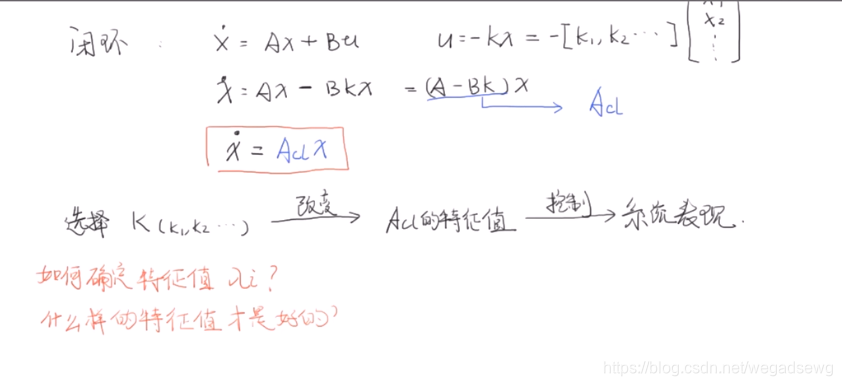 闭环: ẋ = Ax + Bu u = -kx = -[k₁, k₂ ⋯] [x₁ x₂ ⋮]
ẋ = Ax - Bkx = (A - Bk)x → Acl
ẋ = Acl x
选择 K(k₁, k₂ ⋯) 改变→ Acl的特征值 控制→ 系统表现.
如何确定特征值 λi?
什么样的特征值才是好的?
https://blog.csdn.net/wegadsewg